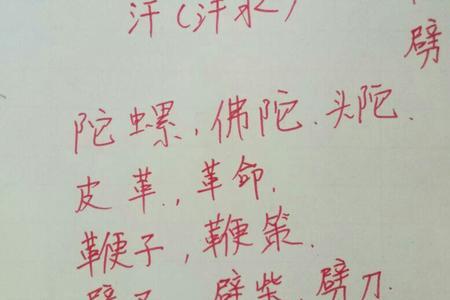 汗(汗水)
劈
陀螺,佛陀.头陀.
皮革.,革命.
鞭子,鞭策.
劈柴,劈刀